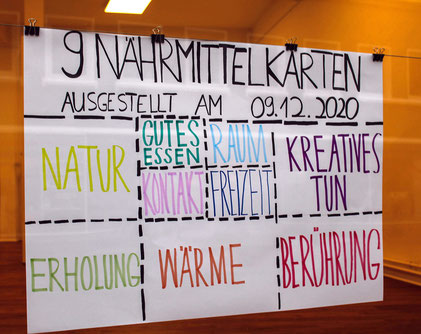 9 NÄHRMITTELKARTEN
AUSGESTELLT AM 09.12.2020
NATUR
GUTES
ESSEN
RAUM
KREATIVES
TUN
KONTAKT
FREIZEIT
ERHOLUNG
WÄRME
BERÜHRUNG